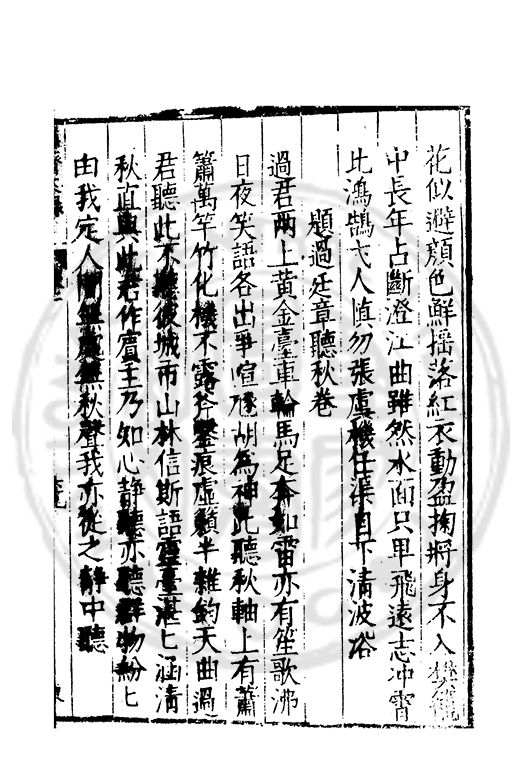 花似避顔色鮮揺落紅衣動盈掬將身不入樊籠
中長年占斷澄江曲雖然水面只卑飛遠志冲霄
比鴻鵠弋人慎勿張虞機任渠自下清波浴
題過廷章聽秋卷
過君兩上黃金臺車輪馬足奔如雷亦有笙歌沸
日夜笑語各出爭喧豗胡為神此聽秋軸上有蕭
簫萬竿竹化機不露斧鑿痕虛籟半雜鈞天曲過
君聽此不聽彼城市山林信斯語靈臺湛匕涵清
秋直與此君作賓主乃知心靜聽亦聽群物紛匕
由我定人間無處無秋聲我亦從之靜中聽